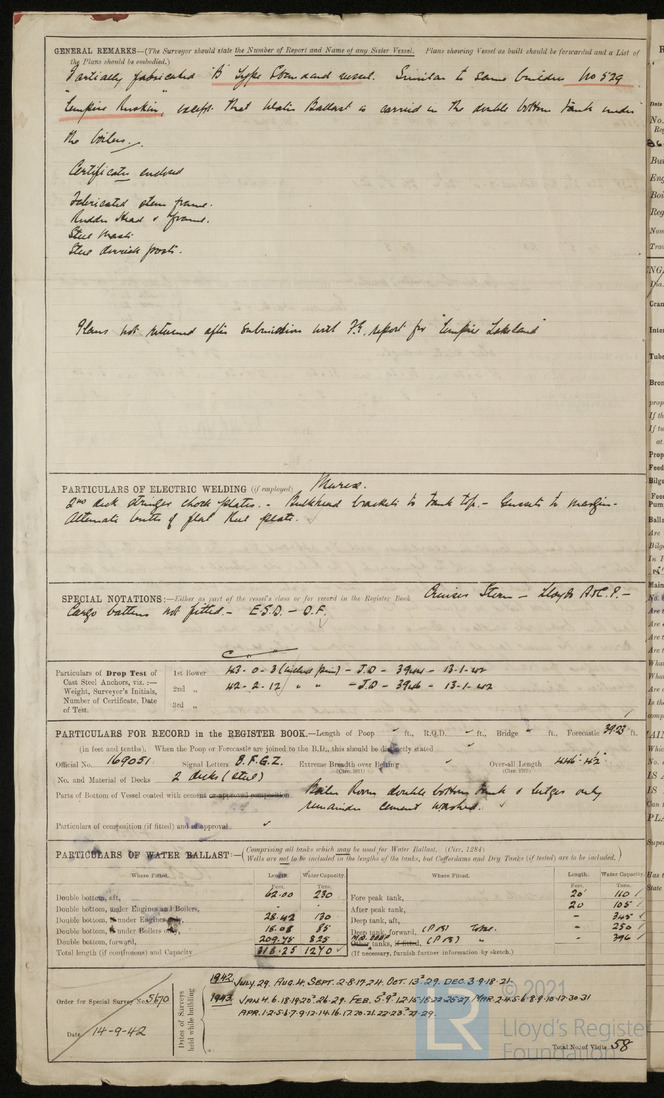 GENERAL REMARKS—(The Surveyor should state the Number of Report and Name of any Sister Vessel. Plans showing Vessel as built should be forwarded and a List of
the Plans should be embodied.)
Partially fabricated 'B' Type Standard vessel. Similar to same builders No 529
"Empire Ruskin", except that Water Ballast is carried in the double bottom tank under
the boilers.
Certificates enclosed
Fabricated stern frame.
Rudder Head & frame.
Steel Masts
Steel derrick posts.
Plans not returned after submission with F.E. report for "Empire Lakeland"
PARTICULARS OF ELECTRIC WELDING (if employed) Murex.
2nd deck stringer chock plates. - Bulkhead brackets to tank top. - Gussets to margin -
Alternate butts of flat keel plate.
SPECIAL NOTATIONS:—Either as part of the vessel's class or for record in the Register Book Cruiser Stern - Lloyds A&C.P. -
Cargo battens not fitted. - E.S.D. - D.F.
Particulars of Drop Test of
Cast Steel Anchors, viz.:—
Weight, Surveyor's Initials,
Number of Certificate, Date
of Test.
1st Bower 43-0-3 - J.D - - 13-1-42
2nd „ 42-2-12 " " - J.D - - 13-1-42
3rd „
PARTICULARS FOR RECORD in the REGISTER BOOK.—Length of Poop ft., R.Q.D. ft., Bridge ft., Forecastle 39.25 ft.
(in feet and tenths). When the Poop or Forecastle are joined to the B.H., this should be distinctly stated
Official No. 169051 Signal Letters B.F.G.Z. Extreme Breadth over Belting Over-all Length 446'-4½"
(Circ. 1911) (Circ. 1703)
No. and Material of Decks 2 decks (steel)
Parts of Bottom of Vessel coated with cement or approved composition Boiler Room double bottom tank & bilges only
remainder cement washed.
Particulars of composition (if fitted) and of approval
PARTICULARS OF WATER BALLAST:—(Comprising all tanks which may be used for Water Ballast. (Circ. 1284)
Wells are not to be included in the lengths of the tanks, but Cofferdams and Dry Tanks (if tested) are to be included.)
Where Fitted. Length. Water Capacity. Where Fitted. Length. Water Capacity.
Feet. Tons. Feet. Tons.
Double bottom, aft, 62.00 230 Fore peak tank, 20' 110
Double bottom, under Engines and Boilers, - After peak tank, 20 105
Double bottom, if under Engines only, 28.42 130 Deep tank, aft, - 345
Double bottom, if under Boilers only, 18.08 85 Deep tank, forward, (P&S) - 250
Double bottom, forward, 209.75 825 Other tanks, if fitted, (P&S) " - 396
Total length (if continuous) and Capacity 318.25 1270 (If necessary, furnish further information by sketch.)
Order for Special Survey No. 5670
Date 14-9-42
Dates of Surveys held while building
1942 July. 29. Aug. 4. Sept. 2.8.17.24. Oct. 13.29. Dec. 3.9.18.21.
1943 Jan 4.6.18.19.20.26.29. Feb. 5.9.12.15.18.22.25.27 Mar. 2.4.5.6.8.9.10.17.30.31
Apr. 1.2.5.6.7.9.12.14.16.17.20.21.22.23.27.29.
Total No. of Visits 58
© 2021
LR
Lloyd's Register
Foundation